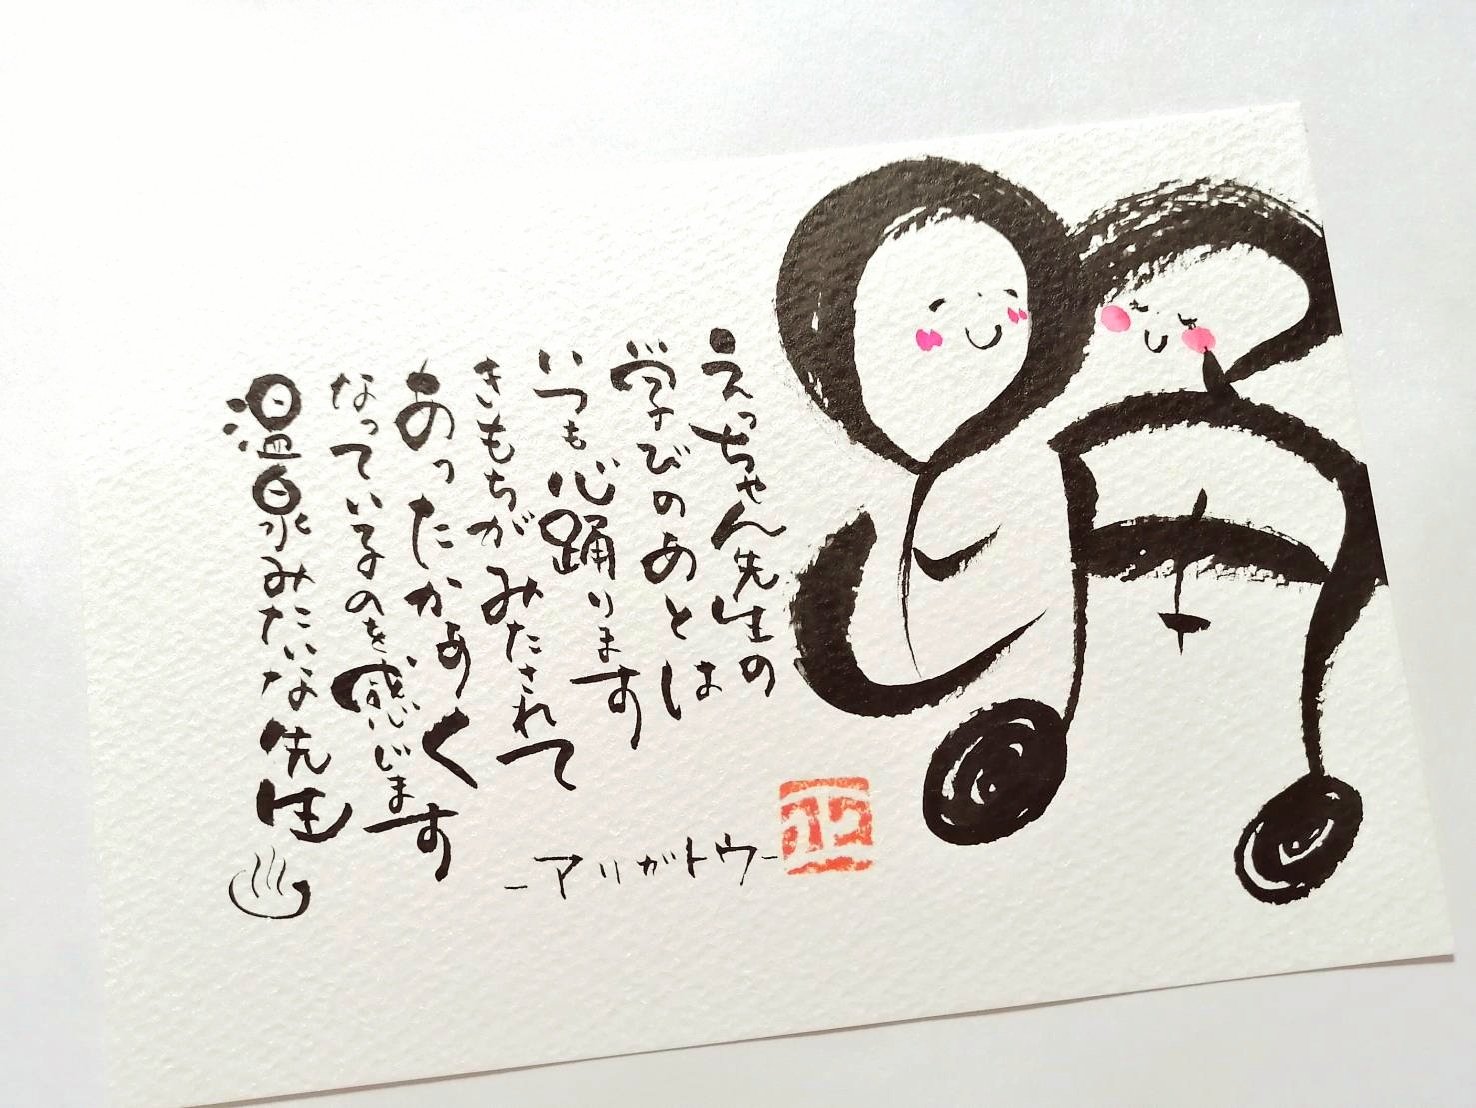 えっちゃん先生の
学びのあとは
いつも心踊ります
きもちがみたされて
あったかぁく
なっているのを感じます
温泉みたいな先生♨
-アリガトウ-